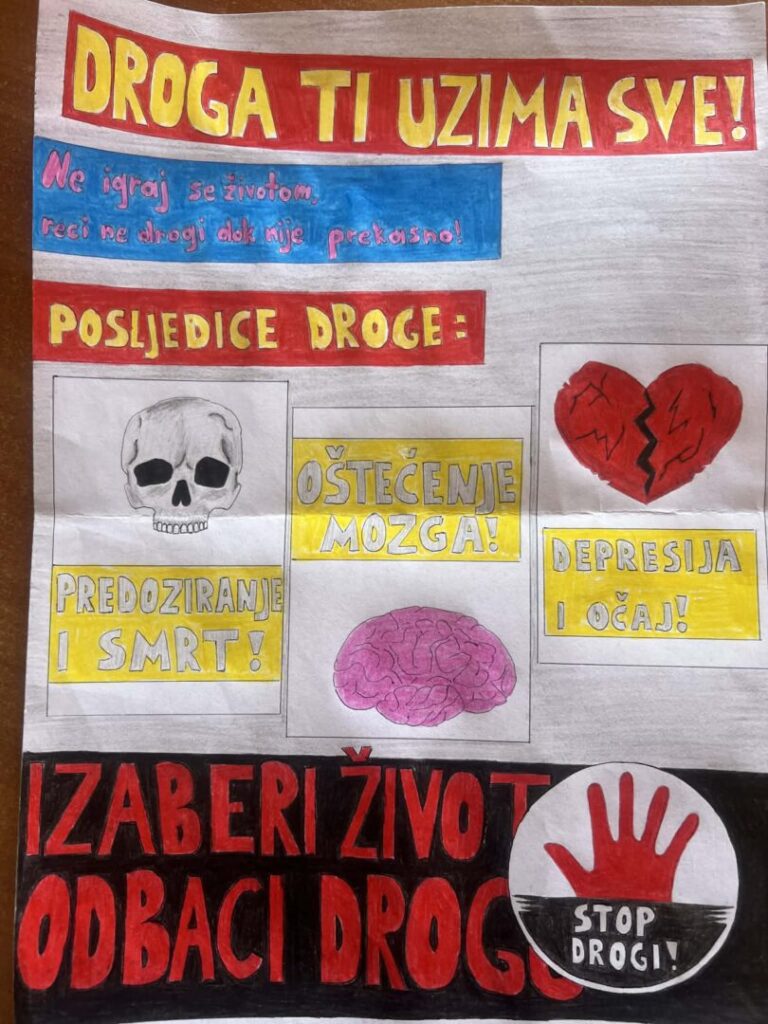 DROGA TI UZIMA SVE!
Ne igraj se životom,
reci ne drogi dok nije prekasno!
POSLJEDICE DROGE:
PREDOZIRANJE
I SMRT!
OŠTEĆENJE
MOZGA!
DEPRESIJA
I OČAJ!
IZABERI ŽIVOT
ODBACI DROGU
STOP
DROGI!